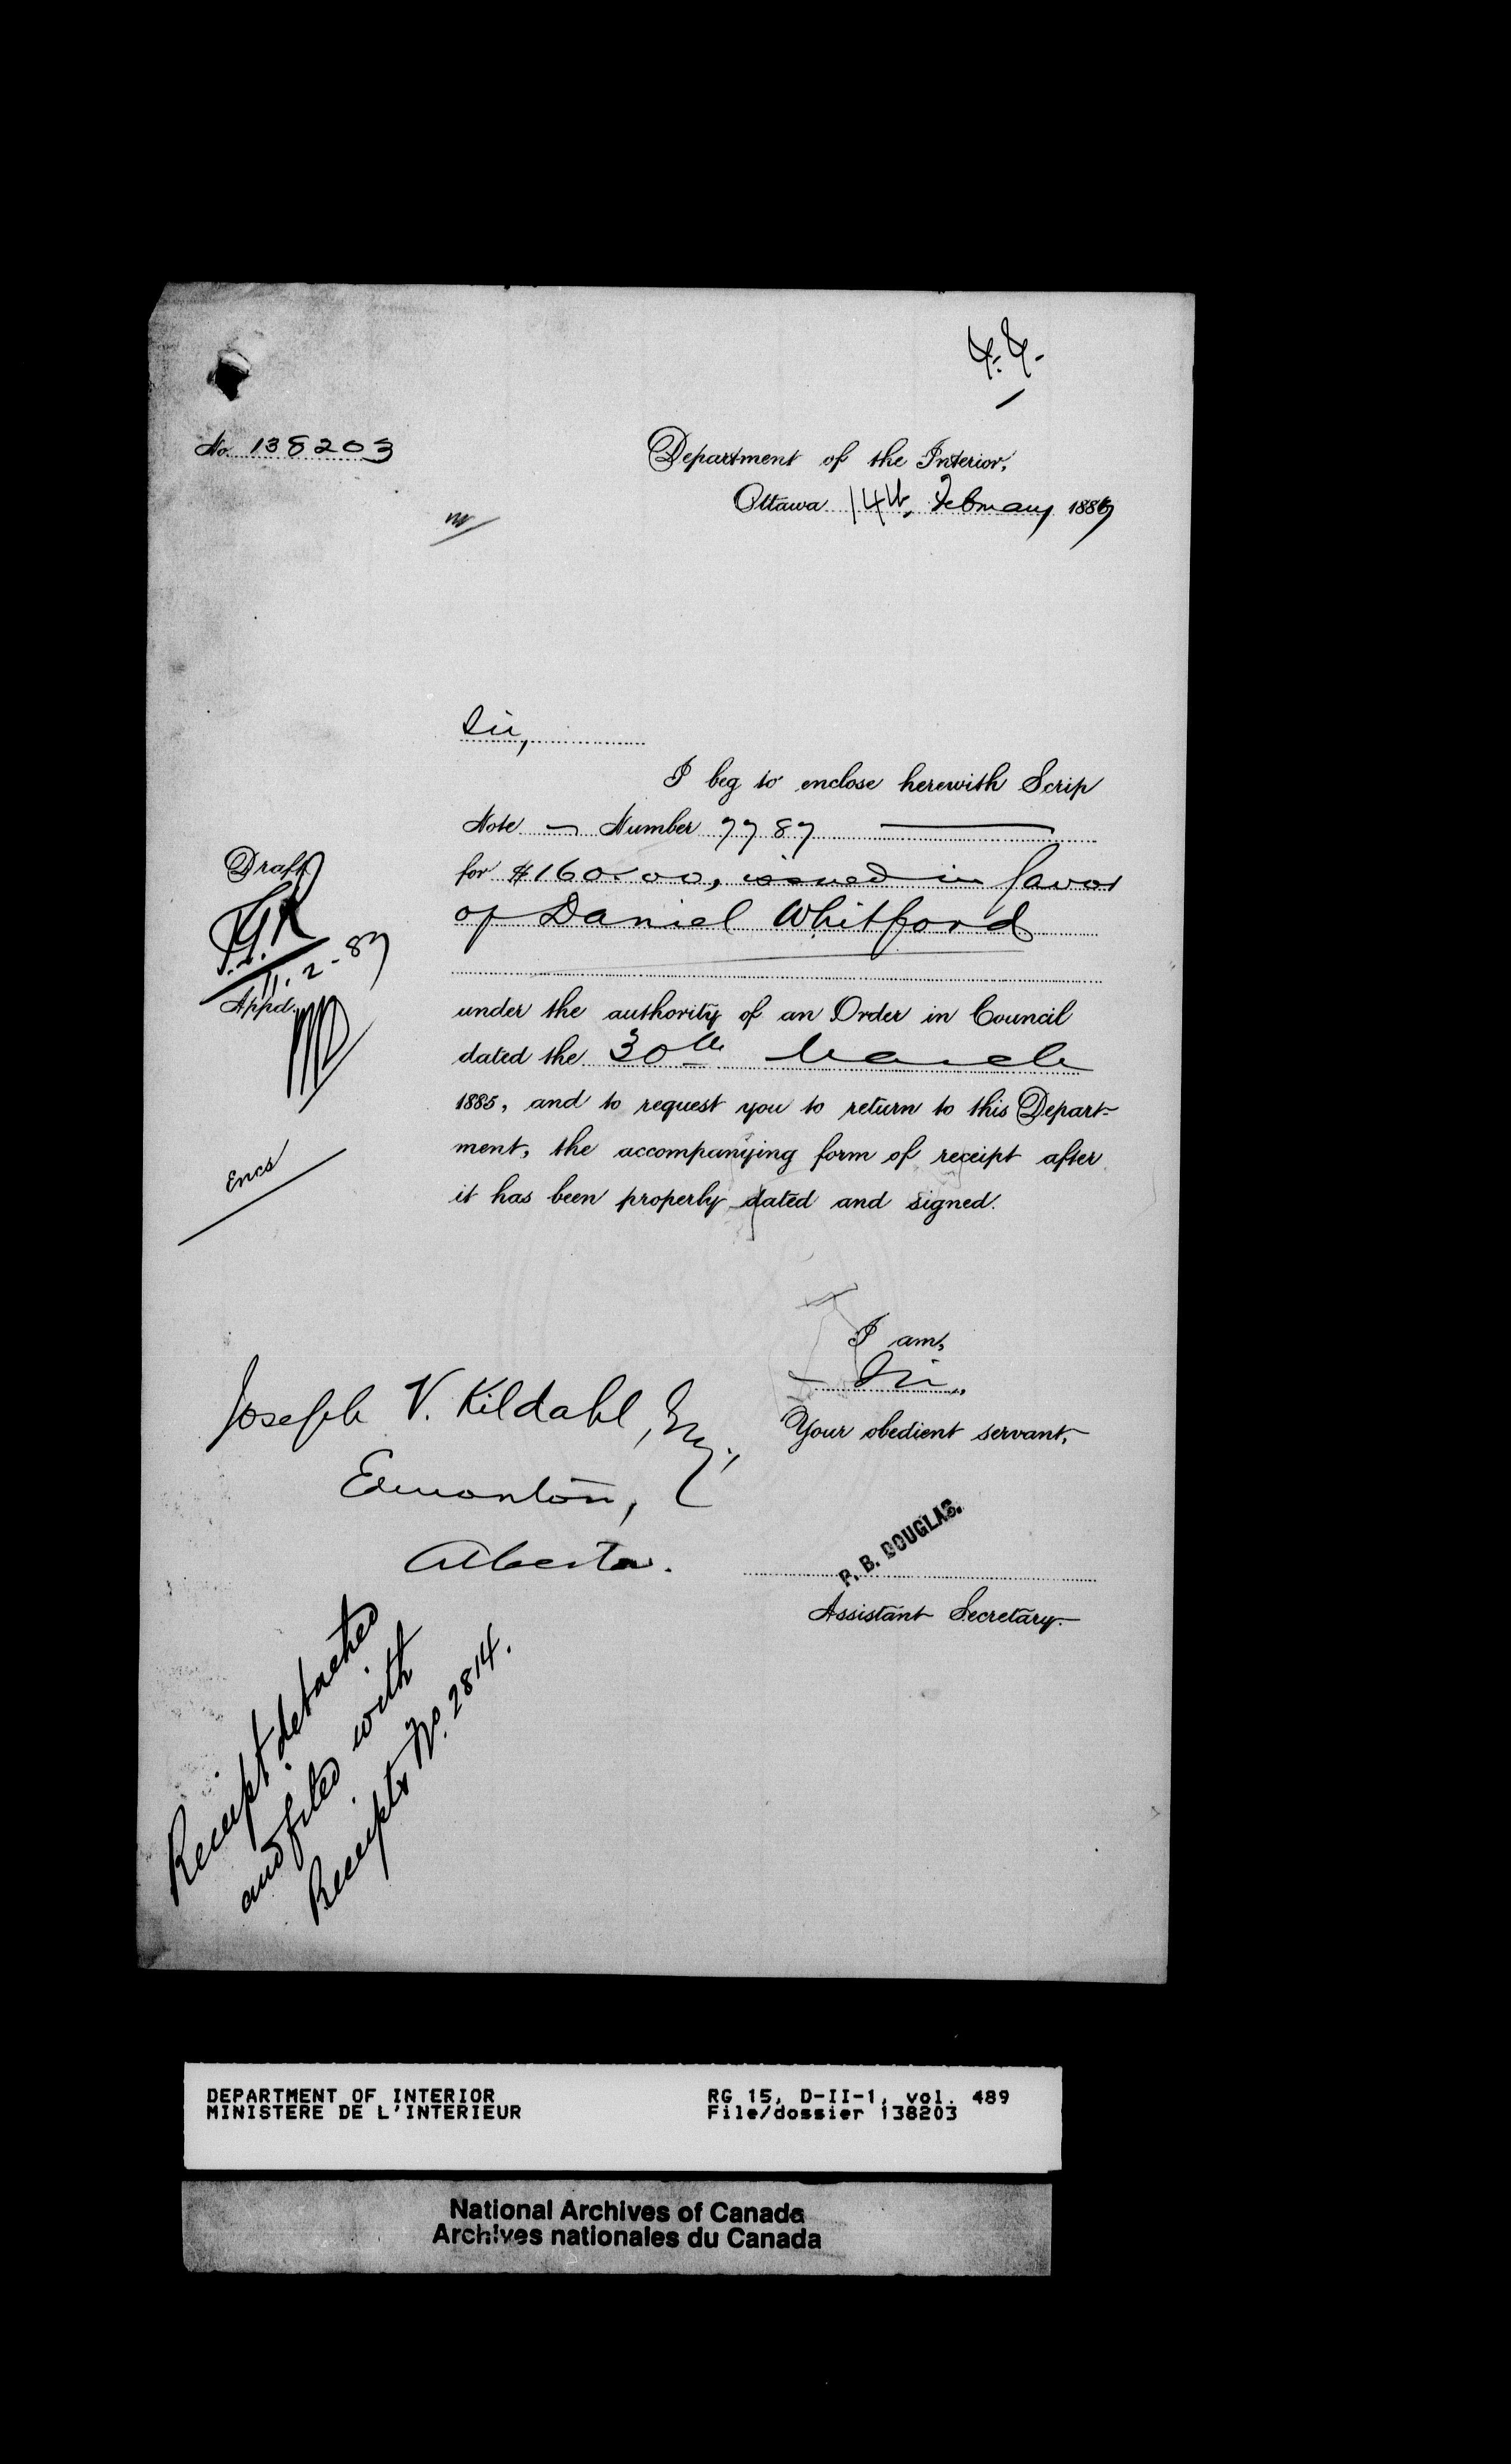 No. 138203
Department of the Interior,
Ottawa 14th, February 1887
Sir,
I beg to enclose herewith Scrip
Note — Number 7787
for $160.00, issued in favor
of Daniel Whitford
under the authority of an Order in Council
dated the 30th March
1885, and to request you to return to this Depart-
ment, the accompanying form of receipt after
it has been properly dated and signed.
Draft
11.2-87
Appd.
Encs
I am,
Sir,
Your obedient servant,
P. B. DOUGLAS.
Assistant Secretary.
Joseph V. Kildahl, Esq.,
Edmonton,
Alberta.
Receipt detached
and filed with
Receipts No. 2814.
DEPARTMENT OF INTERIOR
MINISTERE DE L'INTERIEUR
RG 15, D-II-1, vol. 489
File/dossier 138203
National Archives of Canada
Archives nationales du Canada